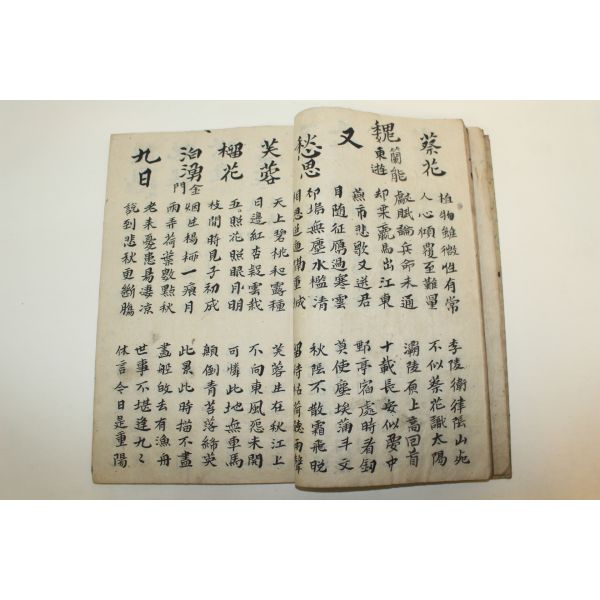 葵花
植物雖微性有常 李陵衛律陰山死
人心傾覆至難量 不似葵花識太陽
魏蘭能東遊
獻賦論兵命未通 灞陵原上高回首
却乘羸馬出江東 十載長安似夢中
又
燕市悲歌又送君 郵亭宿處時看劍
目隨征鴈過寒雲 莫使塵埃蔽斗文
秋思
却塔無塵水檻清 秋陰不散霜飛晚
相思迢遞隔重城 留得枯荷聽雨聲
芙蓉
天上碧桃和露種 芙蓉生在秋江上
日邊紅杏倚雲栽 不向東風怨未開
榴花
五照花照眼月明 可憐此地無車馬
枝間時見子初成 顛倒青苔落絳英
泊湧金門
烟生楊柳一痕月 此景此時描不盡
雨弄荷葉數點秋 畫船收去有漁舟
九日
老來憂患易凄凉 世事不堪逢九九
說到悲秋更斷腸 休言今日是重陽